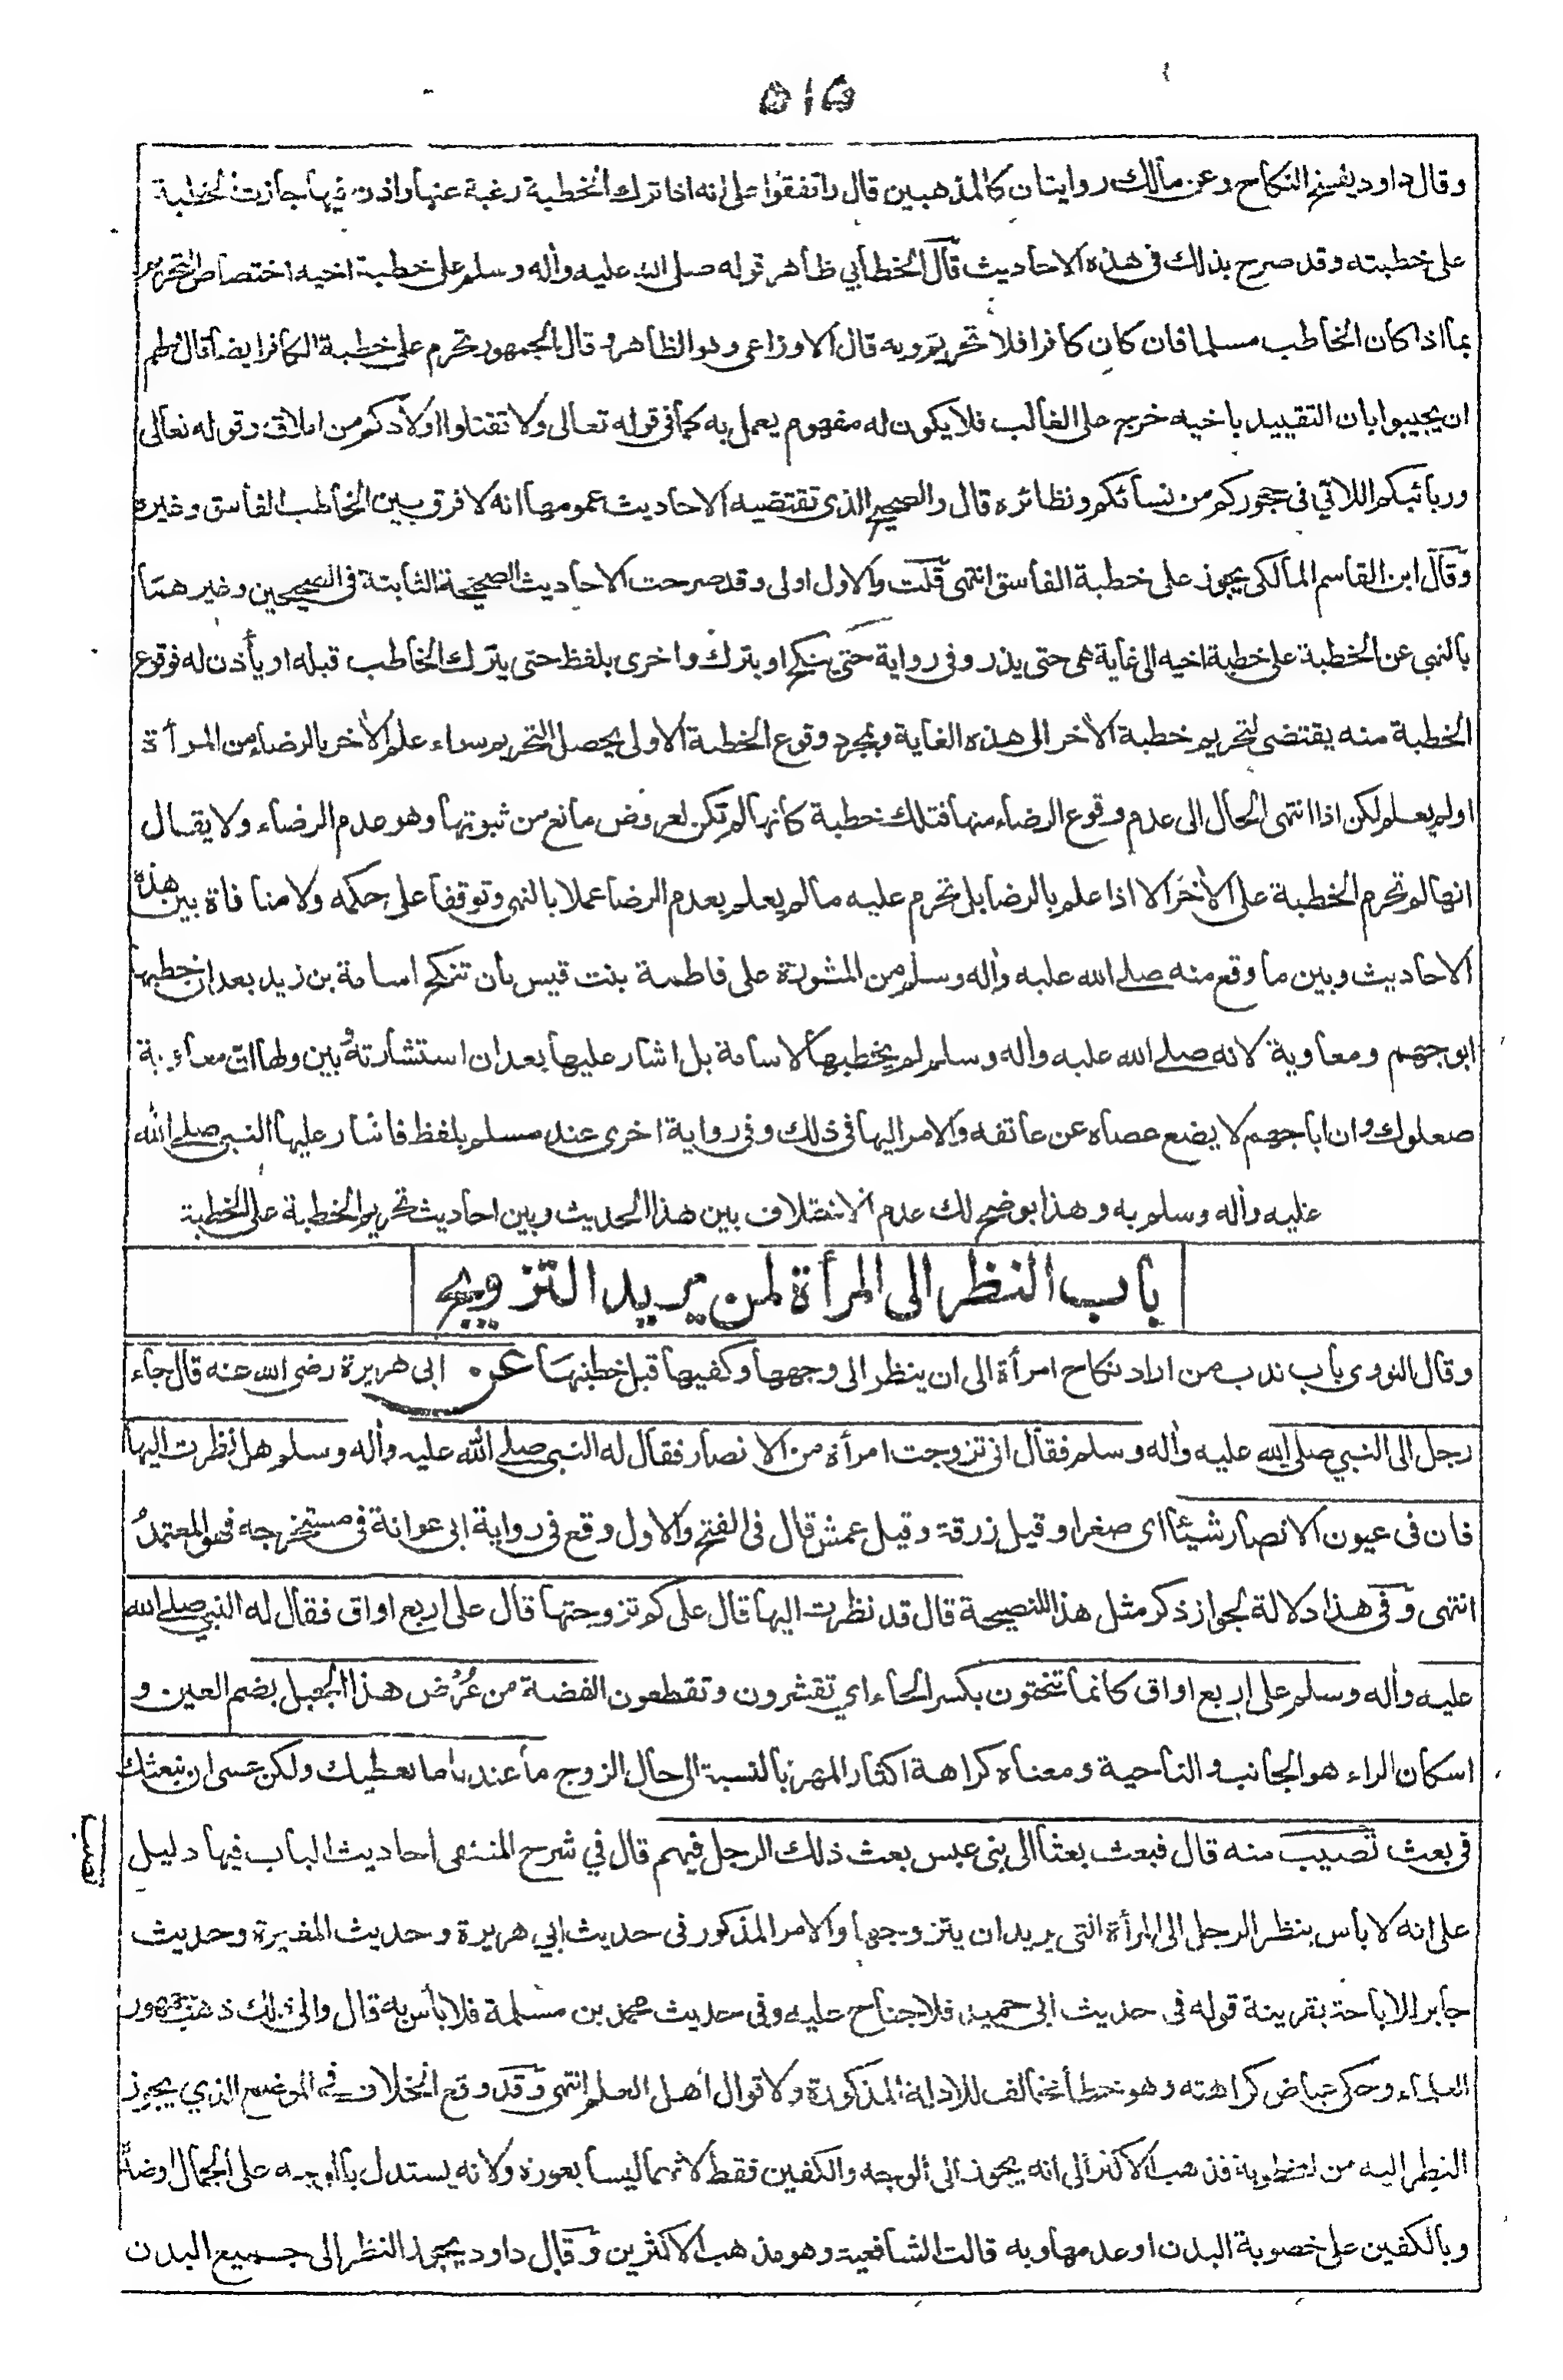 ۵۱۵
وقال داود يفسخ النكاح وعن مالك روايتان كالمذهبين قال واتفقوا على انه اذا ترك الخطبة رغبة عنها واذن فيها جازت الخطبة
على خطبته وقد صرح بذلك فى هذه الاحاديث قال الخطابي ظاهر قوله صلى الله عليه واٰله وسلم على خطبة اخيه اختصاص التحريم
بما اذا كان الخاطب مسلما فان كان كافرا فلا تحريم وبه قال الاوزاعى وهو الظاهر وقال الجمهور تحرم على خطبة الكافر ايضا قال ولهم
ان يجيبوا بان التقييد باخيه خرج على الغالب فلا يكون له مفهوم يعمل به كما فى قوله تعالى ولا تقتلوا اولادكم من املاق وقوله تعالى
وربائبكم اللاتي فى حجوركم من نسائكم ونظائره قال والصحيح الذى تقتضيه الاحاديث عمومها انه لا فرق بين الخاطب الفاسق وغيره
وقال ابن القاسم المالكى يجوز على خطبة الفاسق انتهى قلت والاول اولى وقد صرحت الاحاديث الصحيحة الثابتة فى الصحيحين وغيرهما
بالنهى عن الخطبة على خطبة اخيه الى غاية هى حتى يذر وفى رواية حتى ينكح او يترك واخرى بلفظ حتى يترك الخاطب قبله او يأذن له فوقوع
الخطبة منه يقتضى تحريم خطبة الاٰخر الى هذه الغاية وبمجرد وقوع الخطبة الاولى يحصل التحريم سواء علم الاٰخر بالرضاء من المرأة
اولم يعلم لكن اذا انتهى الحال الى عدم وقوع الرضاء منها فتلك خطبة كانها لم تكن لعروض مانع من ثبوتها وهو عدم الرضاء ولا يقال
انها لم تحرم الخطبة على الاٰخر الا اذا علم بالرضا بل تحرم عليه مالم يعلم بعدم الرضا عملا بالنهى وتوقفا على حكمه ولا منافاة بين هذه
الاحاديث وبين ما وقع منه صلى الله عليه واٰله وسلم من المشورة على فاطمة بنت قيس بأن تنكح اسامة بن زيد بعد ان خطبها
ابو جهم ومعاوية لانه صلى الله عليه واٰله وسلم لم يخطبها لاسامة بل اشار عليها بعد ان استشارته وبين ولها ان معاوية
صعلوك وان ابا جهم لا يضع عصاه عن عاتقه والامر اليها فى ذلك وفى رواية اخرى عند مسلم بلفظ فاشار عليها النبى صلى الله
عليه واٰله وسلم به وهذا يوضح لك عدم الاختلاف بين هذا الحديث وبين احاديث تحريم الخطبة على الخطبة
باب النظر الى المرأة لمن يريد التزويج
وقال النووى باب ندب من اراد نكاح امرأة الى ان ينظر الى وجهها وكفيها قبل خطبتها عن ابى هريرة رضى الله عنه قال جاء
رجل الى النبي صلى الله عليه واٰله وسلم فقال انى تزوجت امرأة من الانصار فقال له النبى صلى الله عليه واٰله وسلم هل نظرت اليها
فان فى عيون الانصار شيئا اى صغرا وقيل زرقة وقيل عمش قال فى الفتح والاول وقع فى رواية ابى عوانة فى مستخرجه فهو المعتمد
انتهى وفى هذا دلالة لجواز ذكر مثل هذا للنصيحة قال قد نظرت اليها قال على كم تزوجتها قال على اربع اواق فقال له النبي صلى الله
عليه واٰله وسلم على اربع اواق كانما تنحتون بكسر الحاء اي تقشرون وتقطعون الفضة من عُرْض هذا الجبل بضم العين و
اسكان الراء هو الجانب والناحية ومعناه كراهة اكثار المهر بالنسبة الى حال الزوج ما عندنا ما نعطيك ولكن عسى ان نبعثك
فى بعث تصيب منه قال فبعث بعثا الى بنى عبس بعث ذلك الرجل فيهم قال في شرح المنتقى أحاديث الباب فيها دليل
على انه لا بأس بنظر الرجل الى المرأة التى يريد ان يتزوجها والامر المذكور فى حديث ابي هريرة وحديث المغيرة وحديث
جابر للاباحة بقرينة قوله فى حديث ابى حميد فلا جناح عليه وفى حديث محمد بن مسلمة فلا بأس به قال والى ذلك ذهب جمهور
العلماء وحكى عياض كراهته وهو خطأ مخالف للادلة المذكورة ولاقوال أهل العلم انتهى وقد وقع الخلاف فى الموضع الذي يجوز
النظر اليه من المخطوبة فذهب الاكثر الى انه يجوز الى الوجه والكفين فقط لانهما ليسا بعورة ولانه يستدل بالوجه على الجمال او ضده
وبالكفين على خصوبة البدن او عدمها وبه قالت الشافعية وهو مذهب الاكثرين وقال داود يجوز النظر الى جميع البدن